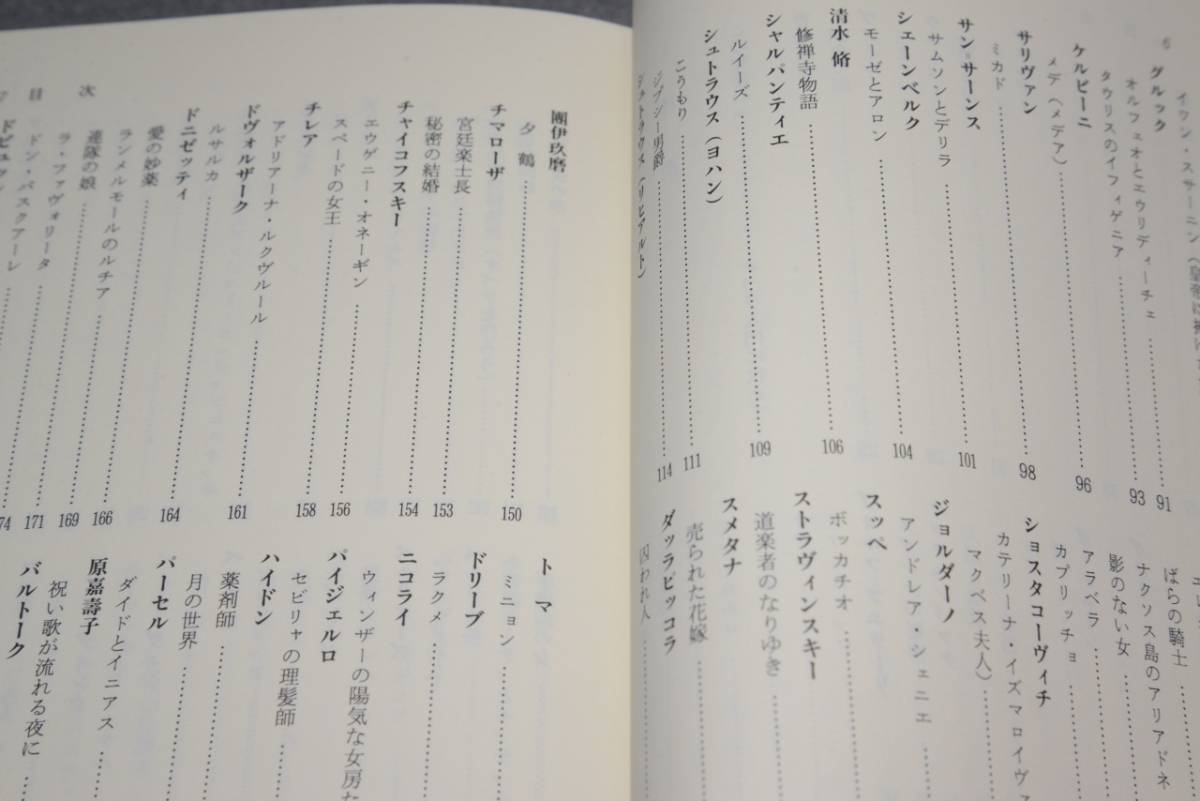 6
イワン・スサーニン（皇帝に捧げ
グルック
オルフェオとエウリディーチェ……91
タウリスのイフィゲニア……93
ケルビーニ
メデ（メデア）……96
サリヴァン
ミカド……98
サン=サーンス
サムソンとデリラ……101
シェーンベルク
モーゼとアロン……104
清水 脩
修禅寺物語……106
シャルパンティエ
ルイーズ……109
シュトラウス（ヨハン）
こうもり……111
ジプシー男爵……114
シュトラウス（リヒアルト）
ばらの騎士……
ナクソス島のアリアドネ
影のない女……
アラベラ……
カプリッチョ……
ショスタコーヴィチ
カテリーナ・イズマロイヴァ
マクベス夫人）……
ジョルダーノ
アンドレア・シェニエ
スッペ
ボッカチオ……
ストラヴィンスキー
道楽者のなりゆき
スメタナ
売られた花嫁……
ダッラピッコラ
囚われ人……
團伊玖磨
夕鶴……150
チマローザ
宮廷楽士長……153
秘密の結婚……154
チャイコフスキー
エウゲニー・オネーギン……156
スペードの女王……158
チレア
アドリアーナ・ルクヴルール……161
ドヴォルザーク
ルサルカ……164
ドニゼッティ
愛の妙薬……166
ランメルモールのルチア……169
連隊の娘……171
ラ・ファヴォリータ……174
ドン・パスクアーレ
ドビュッシ
トマ
ミニョン……
ドリーブ
ラクメ……
ニコライ
ウィンザーの陽気な女房た
パイジェルロ
セビリャの理髪師……
ハイドン
薬剤師……
月の世界……
パーセル
ダイドとイニアス
原嘉壽子
祝い歌が流れる夜に
バルトーク
7 目 次